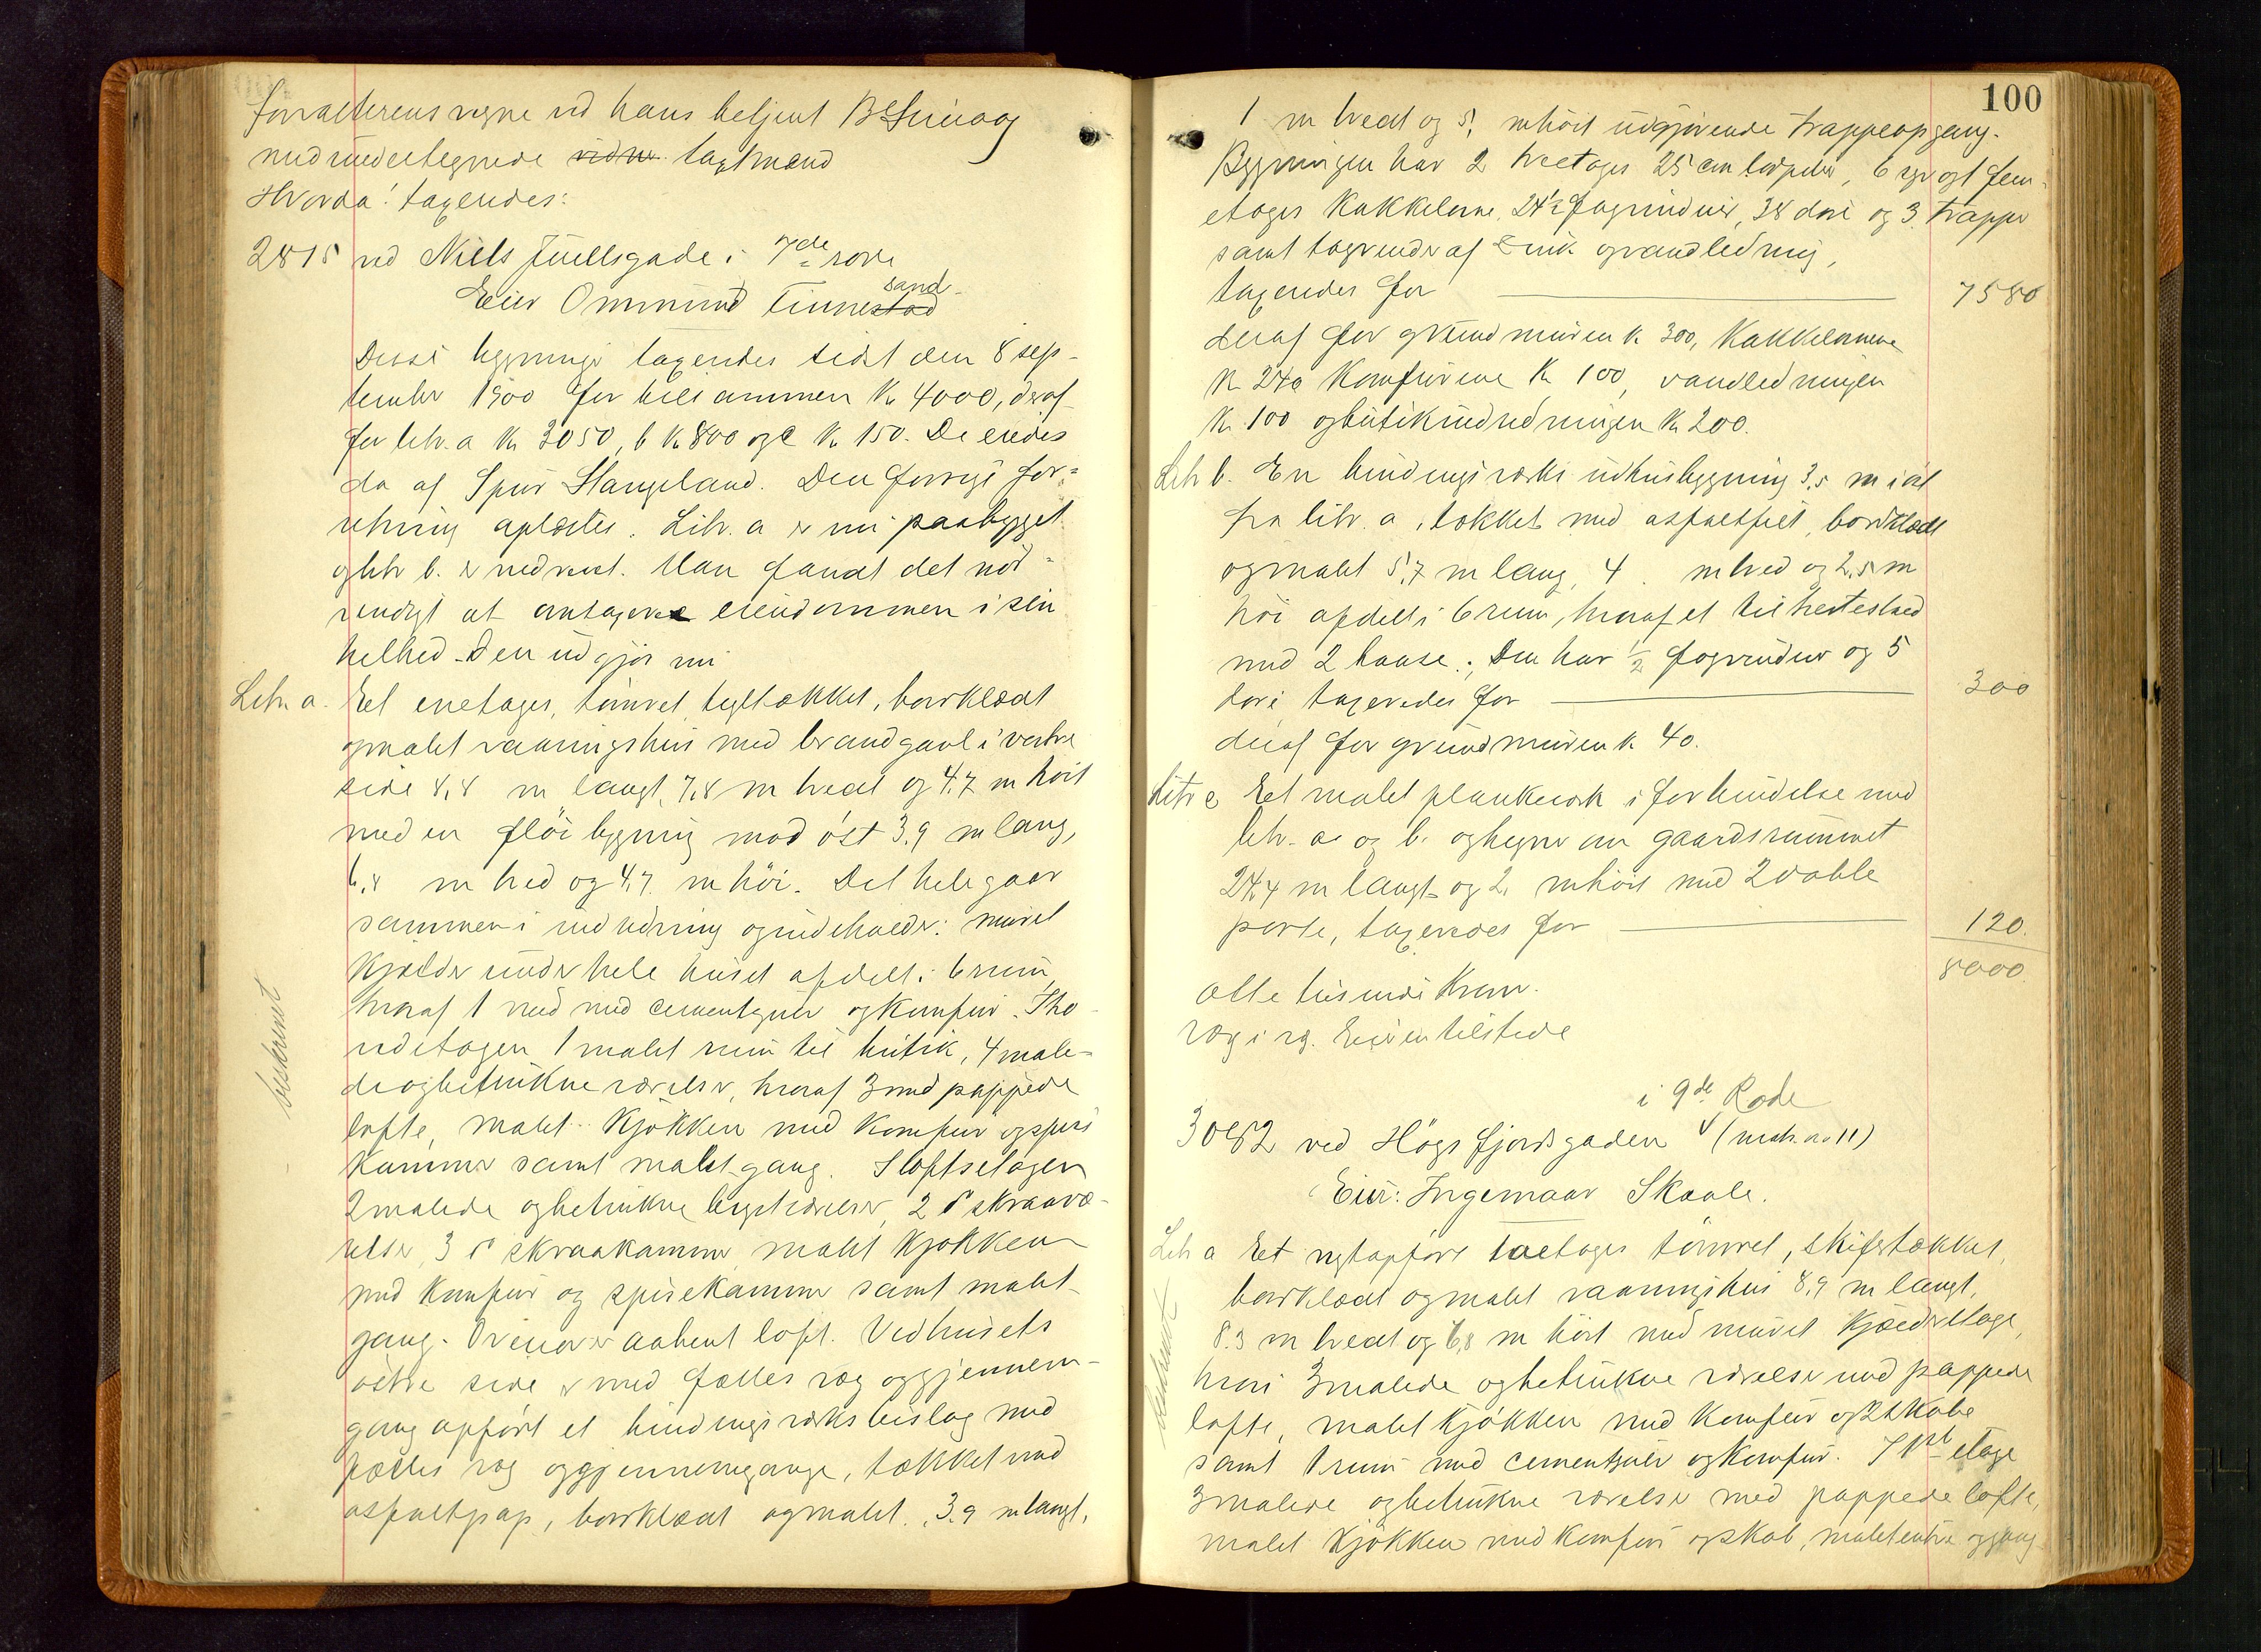 forvalterens vegne ved hans betjent B. Sunio og
med undertegnede vidner taxtmænd
Hvorda! taxeredes:
2815 ved Niels Juellsgade i 7de rode
Eier Ommund Tinnestad sand
Disse bygninger taxeredes sidst den 8 sep-
tember 1900 for tilsammen Kr 4000, deraf
for litr. a Kr 3050, b Kr 800 og c Kr 150. De eiedes
da af Sivert Stangeland. Den forrige for-
retning oplæstes. Litr. a er nu paabygget
og litr b. er nedrevet. Man fandt det nød-
vendigt at omtaxere eiendommen i sin
helhed. Den udgjør nu
Litr. a. Et enetages, tømret, tegltækket, bordklædt
og malet vaaningshus med brandgavl i vestre
side 8,8 m langt, 7,8 m bredt og 4,7 m høit
med en fløibygning mod øst 3,9 m lang,
6,8 m bred og 4,7 m høi. Det hele gaar
sammen i indredning og indeholder: muret
Kjælder under hele huset afdelt i 6 rum,
hvoraf 1 rum med cementgulv og Komfur. I ho-
vedetagen 1 malet rum til butik, 4 male-
de og betrukne værelser, hvoraf 3 med pappede
lofte, malet Kjøkken med Komfur og spise
Kammer samt malet gang. I loftsetagen
2 malede og betrukne kvistværelser, 2 do skraavæ-
relser, 3 do skraakammer, malet Kjøkken
med Komfur og spiseKammer samt malet
gang. Ovenover aabent loft. Ved husets
østre side er med fælles væg og gjennem-
gang opført et bindingsværks bislag med
fælles væg og gjennemgange, tækket med
asfaltpap, bordklædt og malet, 3,9 m langt,
beskrevet
100
1 m bredt og 5, m høit udgjørende trappeopgang.
Bygningen har 2 treetages 25 cm tørpiber, 6 syv og 1 fem-
etages Kakkelovne, 24 1/2 fag vinduer, 38 døre og 3 trapper
samt tagrender af Zink og vandledning,
taxeredes for 7580
deraf for grundmuren Kr 300, Kakkelovnene
Kr 240 Komfurene Kr 100, vandledningen
Kr 100 og butikindredningen Kr 200.
Litr b. En bindingsværks udhusbygning 3,5 m i øst
fra litr. a, tækket med asfaltfilt, bordklædt
og malet 5,7 m lang, 4, m bred og 2,5 m
høi afdelt i 6 rum, hvoraf et til hestestald
med 2 baase; Den har 1/2 fag vinduer og 5
døre, taxeredes for 300
deraf for grundmuren Kr 40.
Litr c Et malet plankeværk i forbindelse med
litr. a og b. og hegner om gaardsrummet
24,4 m langt og 2, m høit med 2 doble
porte, taxeredes for 120.
8000
Otte tusinde Kroner.
væg i væg. Eieren tilstede
i 9de Rode
3082 ved Høgsfjordgaden (matr. no 11)
Eier: Ingemaar Skaale.
Litr a Et nyt opført toetages tømret, skifertækket,
bordklædt og malet vaaningshus 8,9 m langt,
8,3 m bredt og 6,8 m høit med muret Kjælderetage,
hvori 3 malede og betrukne værelser med pappede
lofte, malet Kjøkken med Komfur og 2 skabe
samt 1 rum med cementgulv og Komfur. I 1ste etage
3 malede og betrukne værelser med pappede lofte,
malet Kjøkken med Komfur og skab, malet entre og gang
beskrevet